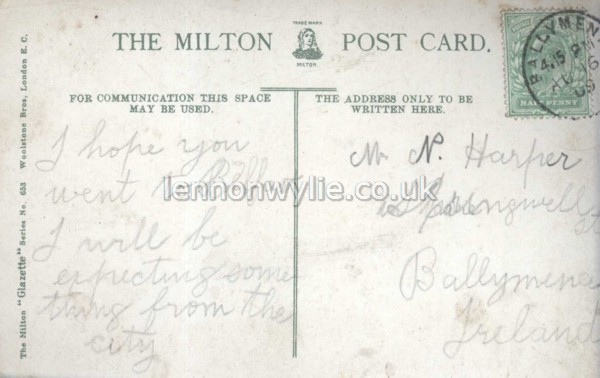 TRADE MARK
MILTON.
THE MILTON POST CARD.
FOR COMMUNICATION THIS SPACE
MAY BE USED.
THE ADDRESS ONLY TO BE
WRITTEN HERE.
The Milton "Glazette" Series No. 653 Woolstone Bros, London E.C.
HALFPENNY
BALLYMENA
4.15 PM
I hope you
went to
I will be
expecting some
thing from the
city
N. Harper
Ballymena
Ireland
lennonwylie.co.uk